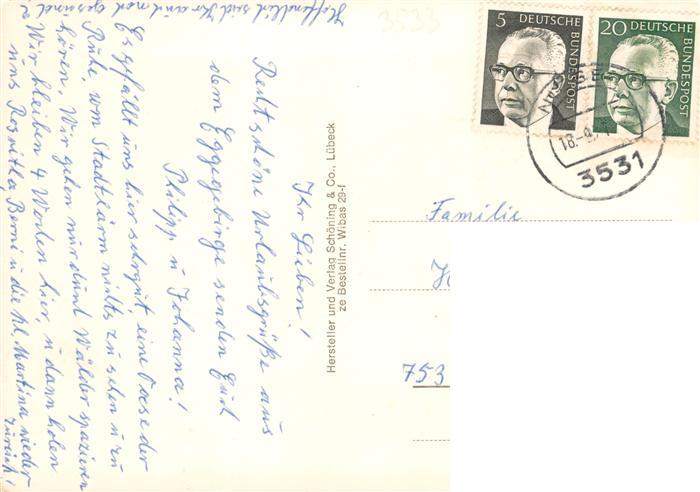 Ihr Lieben!
Recht schöne Urlaubsgrüße aus
dem Eggegebirge senden Euch
Philipp u Johanna!
Es gefällt uns hier sehr gut, eine Oase der
Ruhe, vom Stadtlärm nichts zu sehen u zu
hören. Wir gehen nur durch Wälder spazieren
Wir bleiben 4 Wochen hier, u dann holen
uns Roswitha Berni u die kl. Martina wieder
zurück!
Hoffentlich seid Ihr auch noch gesund
Hersteller und Verlag Schöning & Co., Lübeck
ze Bestellnr. Wibas 29-f
3533
5 DEUTSCHE BUNDESPOST
20 DEUTSCHE BUNDESPOST
18.-9.
3531
Familie
753